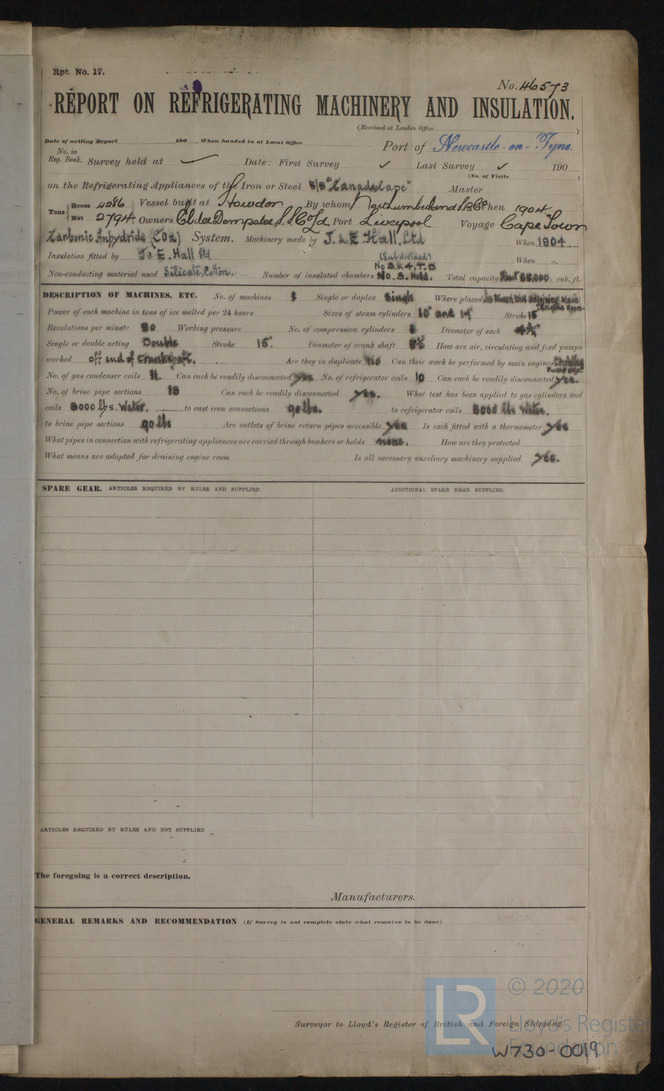 Rpt. No. 17.
No. 46573
REPORT ON REFRIGERATING MACHINERY AND INSULATION.
(Received at London Office )
Date of writing Report 190 When handed in at Local Office Port of Newcastle-on-Tyne
No. in Reg. Book. Survey held at ✓ Date: First Survey ✓ Last Survey ✓ 190
(No. of Visits )
on the Refrigerating Appliances of the Iron or Steel S/S Master
Tons { Gross 4286 Vessel built at Howdon By whom Northumberland S.B. Co When 1904
Net 2794 Owners Elder Dempster Port Liverpool Voyage Cape Town
Carbonic Anhydride (CO2) System. Machinery made by J. & E. Hall. Ltd When 1904
Insulation fitted by J & E. Hall Ltd (Subdivided) When
Non-conducting material used Silicate Cotton. Number of insulated chambers No. 3. Hold. Total capacity cub. ft.
DESCRIPTION OF MACHINES, ETC. No. of machines Single or duplex Single Where placed
Power of each machine in tons of ice melted per 24 hours Sizes of steam cylinders 10" and Stroke 15"
Revolutions per minute 90 Working pressure No. of compression cylinders Diameter of each
Single or double acting Double Stroke 15" Diameter of crank shaft How are air, circulating and feed pumps
worked off end of crankshaft. Are they in duplicate No Can their work be performed by main engine
No. of gas condenser coils 11 Can each be readily disconnected yes No. of refrigerator coils 10 Can each be readily disconnected yes.
No. of brine pipe sections 13 Can each be readily disconnected yes. What test has been applied to gas cylinders and
coils 3000 lbs. Water. to cast iron connections 90 lbs. to refrigerator coils 3000 lbs Water.
to brine pipe sections 90 lbs Are outlets of brine return pipes accessible yes Is each fitted with a thermometer yes
What pipes in connection with refrigerating appliances are carried through bunkers or holds none. How are they protected
What means are adopted for draining engine room Is all necessary auxiliary machinery supplied yes.
SPARE GEAR. ARTICLES REQUIRED BY RULES AND SUPPLIED. ADDITIONAL SPARE GEAR SUPPLIED.
ARTICLES REQUIRED BY RULES AND NOT SUPPLIED
The foregoing is a correct description.
Manufacturers.
GENERAL REMARKS AND RECOMMENDATION (If Survey is not complete state what remains to be done)
Surveyor to Lloyd's Register of British and Foreign Shipping.
© 2020
LR Lloyd's Register
Foundation
W730-0019